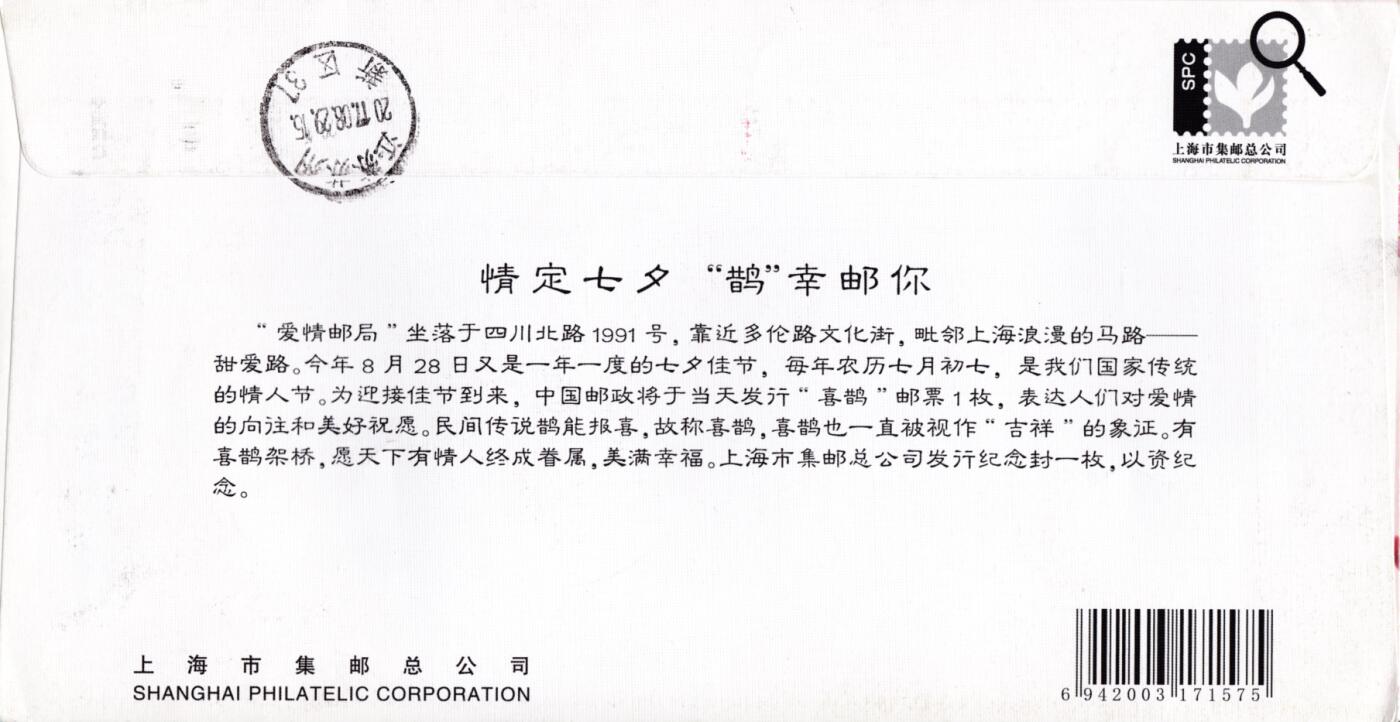 新区37
2017.08.29.15
江苏苏州
SPC
上海市集邮总公司
SHANGHAI PHILATELIC CORPORATION
情定七夕 “鹊”幸邮你
“爱情邮局”坐落于四川北路1991号，靠近多伦路文化街，毗邻上海浪漫的马路——
甜爱路。今年8月28日又是一年一度的七夕佳节，每年农历七月初七，是我们国家传统
的情人节。为迎接佳节到来，中国邮政将于当天发行“喜鹊”邮票1枚，表达人们对爱情
的向往和美好祝愿。民间传说鹊能报喜，故称喜鹊，喜鹊也一直被视作“吉祥”的象征。有
喜鹊架桥，愿天下有情人终成眷属，美满幸福。上海市集邮总公司发行纪念封一枚，以资纪
念。
上海市集邮总公司
SHANGHAI PHILATELIC CORPORATION
6 942003 171575